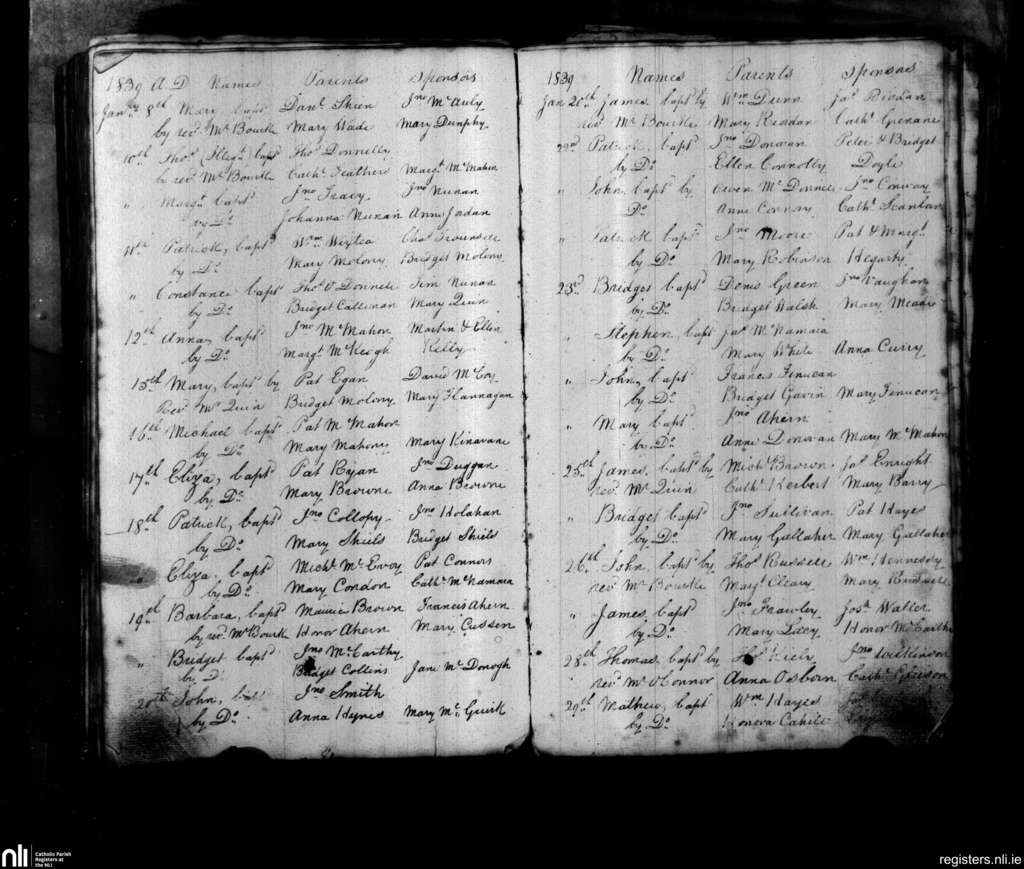 1839 A D Names Parents Sponsors
Janry 8th Mary capt Danl Shien Jno McAuly
by revd Mr Bourke Mary Wade Mary Dunphy
10th Thos (Illegt) capt Thos Donnelly
by revd Mr Bourke Cathe Feathers Margt McMahon
" Margt capt Jno Tracy Jno Nunan
by Do Johanna Nunan Anne Jordan
11th Patrick, capt Wm
by Do Mary Molony Bridget Molony
" Constance capt Thos O'Donnell Jim Nunan
by Do Bridget Callinan Mary Quin
12th Anna, capt Jno McMahon Martin & Ellen
by Do Margt McKeogh Kelly
15th Mary, capt by Pat Egan David McCoy
Revd Mr Quin Bridget Molony Mary Flannagan
16th Michael capt Pat McMahon
by Do Mary Mahony Mary Kinavane
17th Eliza, capt Pat Ryan Jno Duggan
by Do Mary Browne Anna Browne
18th Patrick, capt Jno Collopy Jno Holahan
by Do Mary Shiels Bridget Shiels
Eliza, capt Michl McEnvoy Pat Connors
by Do Mary Condon Cathe McNamara
19th Barbara, capt Maurice Brown Francis Ahern
by revd Mr Bourk Honor Ahern Mary Cussen
" Bridget capt Jno McCarthy
by D Bridget Collins Jane McDonogh
20th John, capt Jno Smith
by Do Anna Hynes Mary McGuirk
1839 Names Parents Sponsors
Jan 20th James capt by Wm Dunn Jas Riedan
revd Mr Bourke Mary Readan Cathe Grenane
22d Patrick, capt Jno Donovan Peter & Bridget
by Do Ellen Connolly Doyle
" John, capt by Owen McDonnell Jno Conway
Do Anne Connory Cathe Scanlan
" Patrick capt Jno Moore Pat & Margt
by Do Mary Robinson Hegarty
23d Bridget capt Denis Green Jno Vaughan
by Do Bridget Walsh Mary Meade
" Stephen, capt Jas McNamara
by Do Mary White Anna Curry
" John, capt Francis Finucan
by Do Bridget Gavin Mary Finucan
" Mary capt Jno Ahern
by Do Anne Donovan Mary McMahon
25th James, capt by Michl Brown Jas Enright
revd Mr Quin Cathe Herbert Mary Barry
" Bridget capt Jno Sullivan Pat Hayes
by Do Mary Gallaher Mary Gallaher
26th John, capt by Thos Russell Wm Kennedy
revd Mr Bourke Margt Cleary Mary Russell
" James, capt Jno Frawley Josh Waller
by Do Mary Lacy Honor McCarthy
28th Thomas, capt by Jno Wilkinson
revd Mr O'Connor Anna Osborn Cathe Gleeson
29th Mathew, capt Wm Hayes
by Do Honora Cahill
nli Catholic Parish
Registers at
the NLI
registers.nli.ie